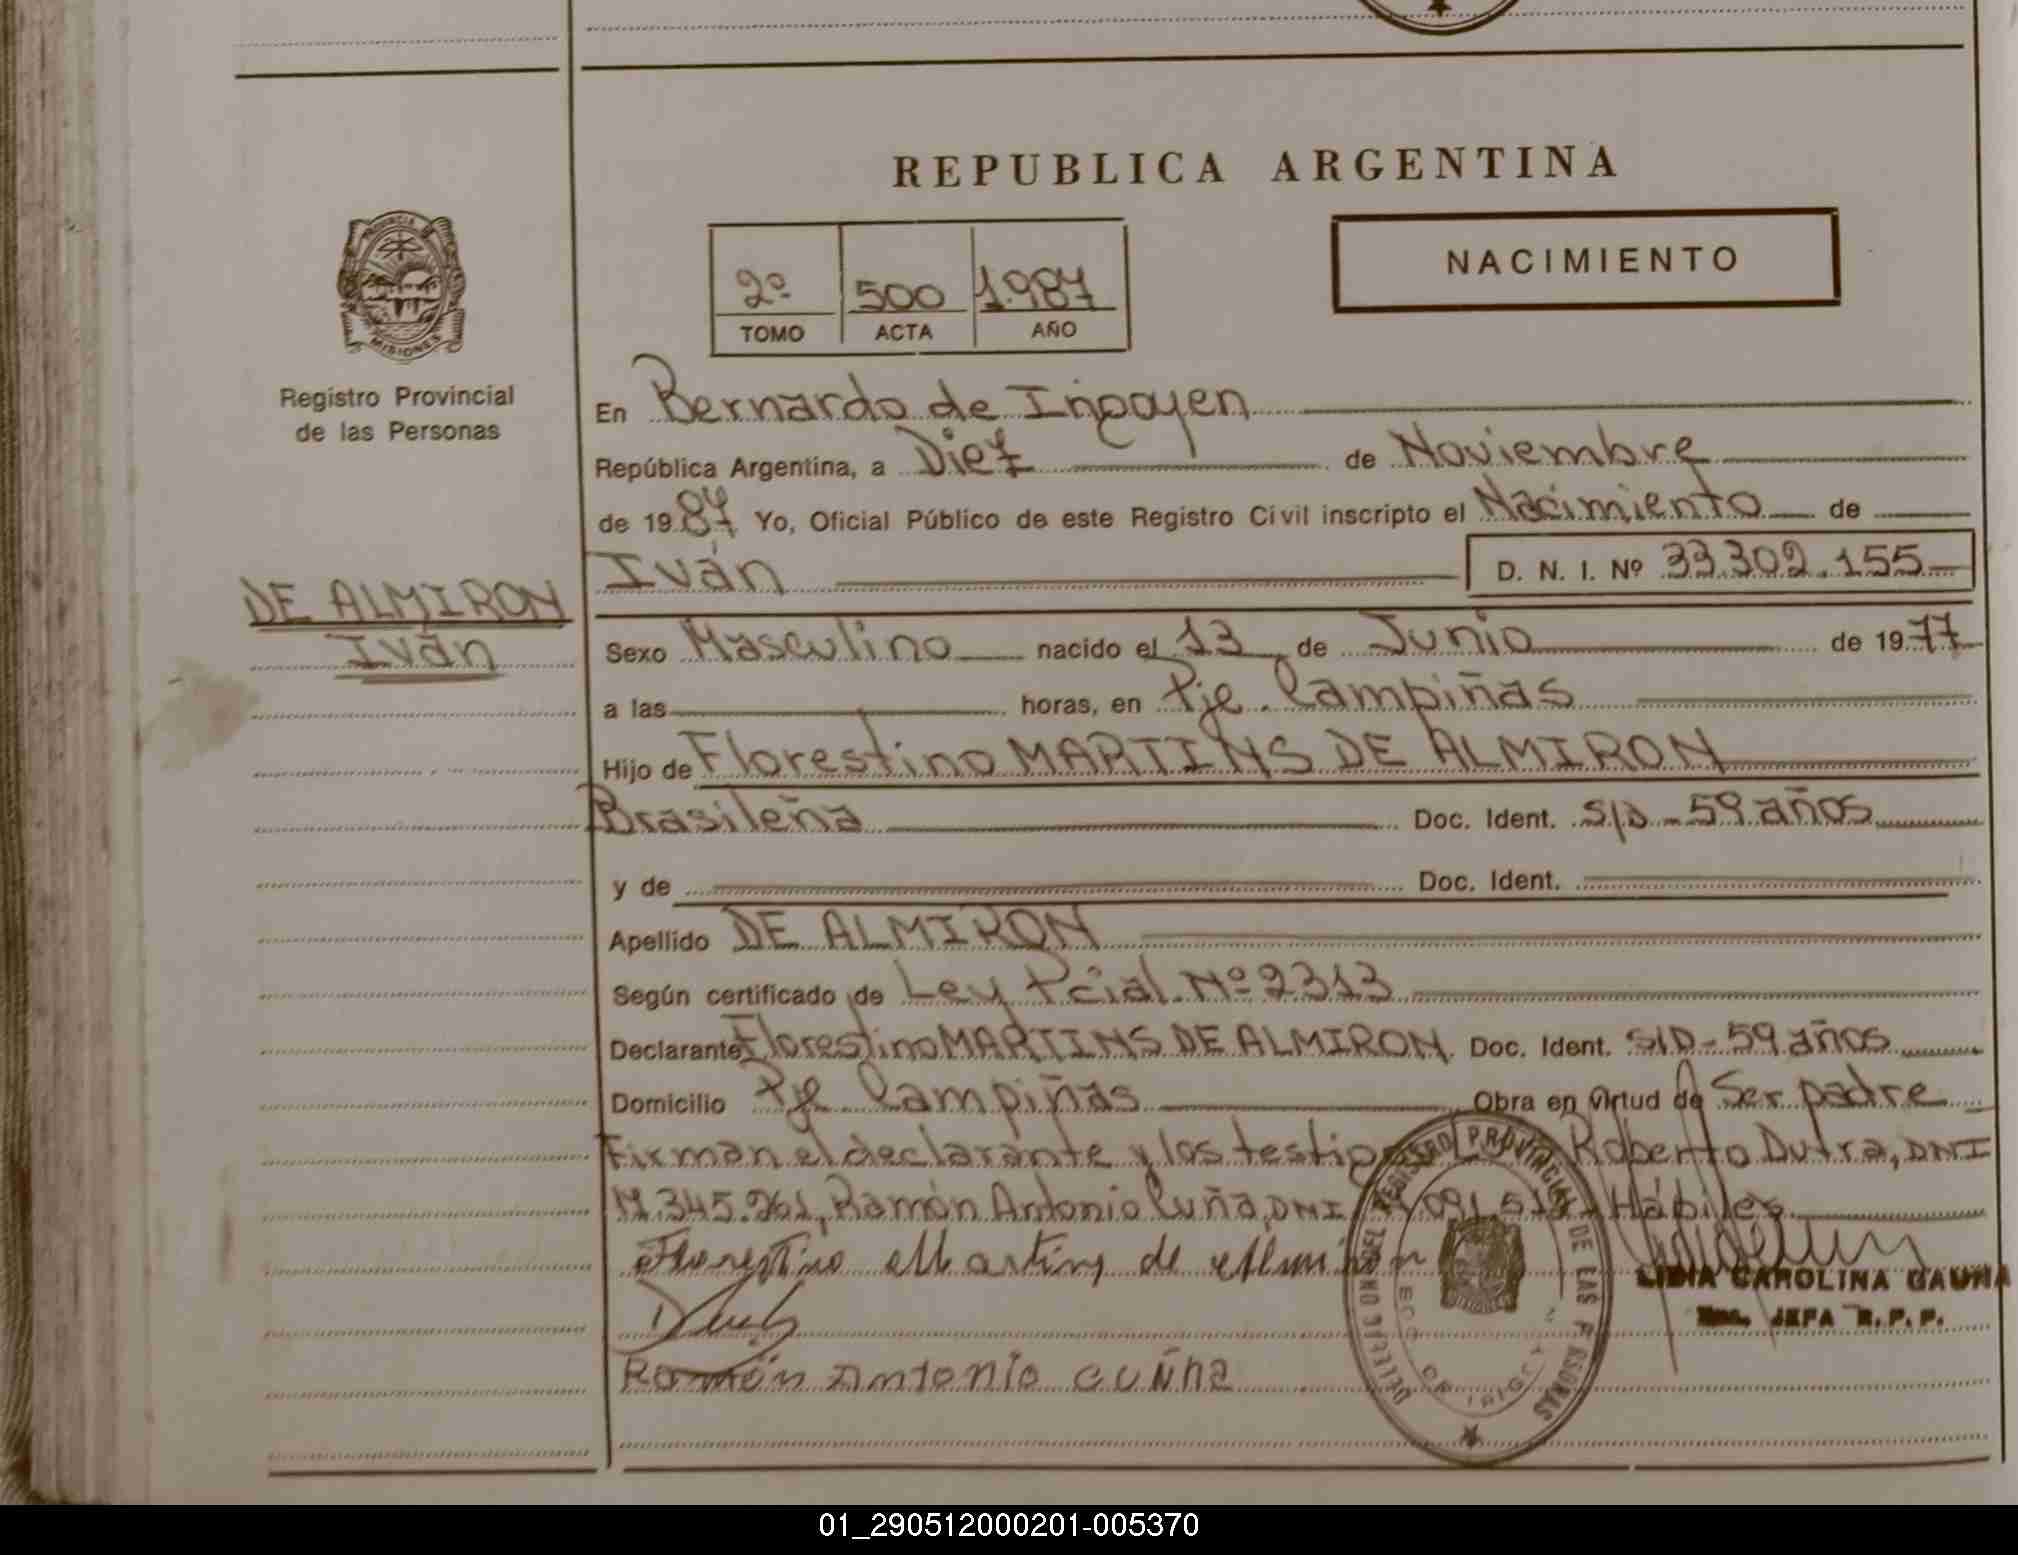 REPUBLICA ARGENTINA
PROVINCIA
MISIONES
Registro Provincial
de las Personas
2º 500 1.987
TOMO ACTA AÑO
NACIMIENTO
En Bernardo de Irigoyen
República Argentina, a Diez de Noviembre
de 19 87 Yo, Oficial Público de este Registro Civil inscripto el Nacimiento de
Iván D. N. I. Nº 33.302.155
DE ALMIRON
Iván
Sexo Masculino nacido el 13 de Junio de 19 77
a las horas, en Pje. Campiñas
Hijo de Florestino MARTINS DE ALMIRON
Brasileña Doc. Ident. S/D - 59 años
y de Doc. Ident.
Apellido DE ALMIRON
Según certificado de Ley Pcial. Nº 2313
Declarante Florestino MARTINS DE ALMIRON. Doc. Ident. S/D - 59 años
Domicilio Pje Campiñas Obra en virtud de Ser padre
Firman el declarante y los Roberto Dutra, DNI
Ramón Antonio Cuña, DNI Hábiles
Florestino Martins de
LIDIA CAROLINA GAUNA
JEFA R.P.P.
Ramón Antonio cuñha
REGISTRO PROVINCIAL DE LAS
01_290512000201-005370